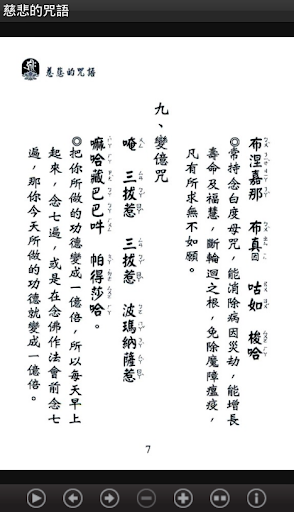 慈悲的咒語
慈悲的咒語
布涅嘉那 布真因 咕如 梭哈
◎常持念白度母咒，能消除病因災劫，能增長
壽命及福慧，斷輪迴之根，免除魔障瘟疫，
凡有所求無不如願。
九、變億咒
唵 三拔惹 三拔惹 波瑪納薩惹
嘛哈藏巴巴吽 帕得莎哈。
◎把你所做的功德變成一億倍，所以每天早上
起來，念七遍，或是在念佛作法會前念七
遍，那你今天所做的功德就變成一億倍。
7